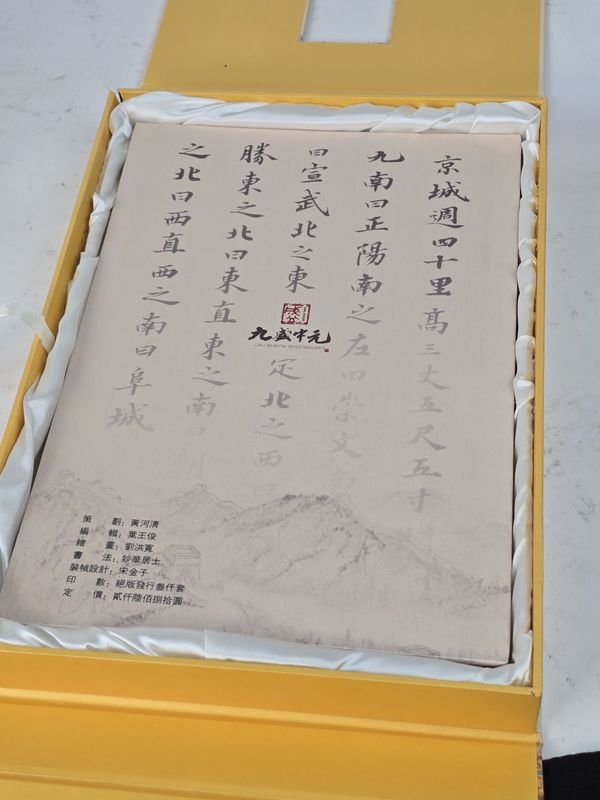 京城週四十里高三丈五尺五寸
九南曰正陽南之左曰崇文南
曰宣武北之東
定北之西曰
勝東之北曰東直東之南曰朝
之北曰西直西之南曰阜城
九盛中元
JIU SHENG ZHONG YUAN
策劃：黃河清
編輯：葉王俊
繪畫：劉洪寬
書法：妙華居士
裝幀設計：宋金子
印數：絕版發行叁仟套
定價：貳仟陸佰捌拾圓